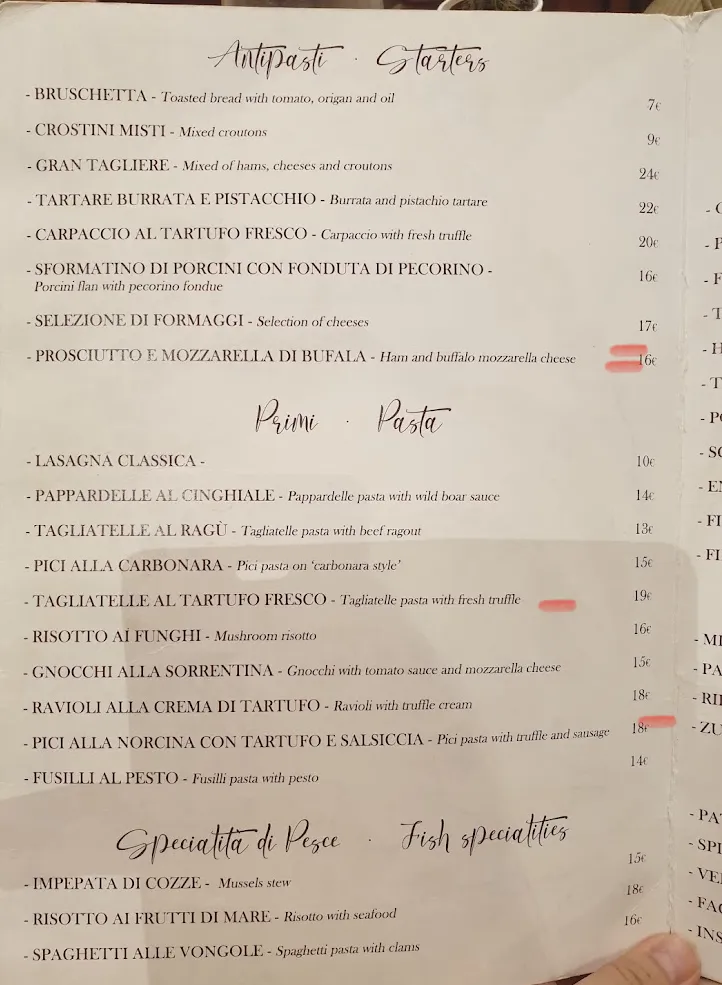 Antipasti · Starters
- BRUSCHETTA - Toasted bread with tomato, origan and oil 7€
- CROSTINI MISTI - Mixed croutons 9€
- GRAN TAGLIERE - Mixed of hams, cheeses and croutons 24€
- TARTARE BURRATA E PISTACCHIO - Burrata and pistachio tartare 22€
- CARPACCIO AL TARTUFO FRESCO - Carpaccio with fresh truffle 20€
- SFORMATINO DI PORCINI CON FONDUTA DI PECORINO - 16€
Porcini flan with pecorino fondue
- SELEZIONE DI FORMAGGI - Selection of cheeses 17€
- PROSCIUTTO E MOZZARELLA DI BUFALA - Ham and buffalo mozzarella cheese 16€
Primi · Pasta
- LASAGNA CLASSICA - 10€
- PAPPARDELLE AL CINGHIALE - Pappardelle pasta with wild boar sauce 14€
- TAGLIATELLE AL RAGÙ - Tagliatelle pasta with beef ragout 13€
- PICI ALLA CARBONARA - Pici pasta on ‘carbonara style’ 15€
- TAGLIATELLE AL TARTUFO FRESCO - Tagliatelle pasta with fresh truffle 19€
- RISOTTO AI FUNGHI - Mushroom risotto 16€
- GNOCCHI ALLA SORRENTINA - Gnocchi with tomato sauce and mozzarella cheese 15€
- RAVIOLI ALLA CREMA DI TARTUFO - Ravioli with truffle cream 18€
- PICI ALLA NORCINA CON TARTUFO E SALSICCIA - Pici pasta with truffle and sausage 18€
- FUSILLI AL PESTO - Fusilli pasta with pesto 14€
Specialità di Pesce · Fish specialities
- IMPEPATA DI COZZE - Mussels stew 15€
- RISOTTO AI FRUTTI DI MARE - Risotto with seafood 18€
- SPAGHETTI ALLE VONGOLE - Spaghetti pasta with clams 16€